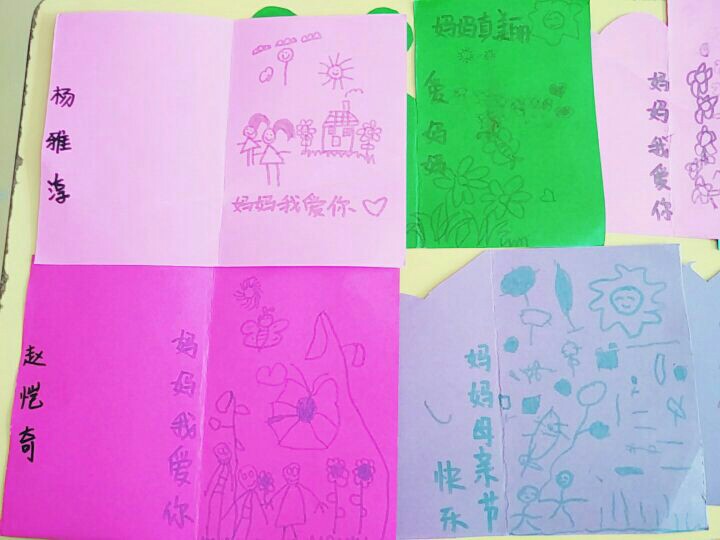 杨雅淳
妈妈我爱你
妈妈真美丽
爱妈妈
妈妈我爱你
赵恺奇
妈妈我爱你
妈妈母亲节
快乐